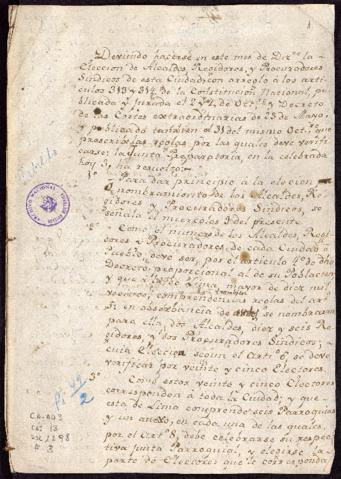 Deviendo hacerse en este mes de Dizre. la
Eleccion de Alcaldes, Regidores, y Procuradores
Sindicos de esta Ciudad con arreglo à los arti-
culos 313 y 314 de la Constitucion Nacional, pu-
blicada y Jurada el 2 y 4 de Octre. y Decreto
de las Cortes extraordinarias de 23 de Mayo,
y publicado tambien el 31 del mismo Octre. que
prescrive las reglas por las quales deve verifi-
carse: la Junta Preparatoria, en la celebrada
hoy 5, ha resuelto:
1º Para dar principio à la eleccion
ò nombramiento de los Alcaldes, Re-
gidores y Procuradores Sindicos, se
señala el miercoles 9 del presente.
2º Como el numero de los Alcaldes, Regi-
dores y Procuradores de cada Ciudad ò
Pueblo deve ser, por el articulo 4º de dho
Decreto, proporcional al de su Poblacion
y que Lima, mayor de diez mil
vecinos, comprenden las reglas del ar-
en observancia de se nombraran
para ella, dos Alcaldes, diez y seis Re-
gidores, y dos Procuradores Sindicos;
cuia Eleccion segun el Arto. 6, se deve
verificar por veinte y cinco Electores.
3º Como estos veinte y cinco Electores
corresponden à toda la Ciudad; y que
esta de Lima comprende seis Parroquias
y un anexo, en cada una de las quales,
por el Arto. 8, deve celebrarse su respec-
tiva Junta Parroquial, y elegirse la
parte de Electores que le corresponda
ARCHIVO NACIONAL
Pi 42
2
CA-AD3
CAJ 13
DOC 1298
F. 3